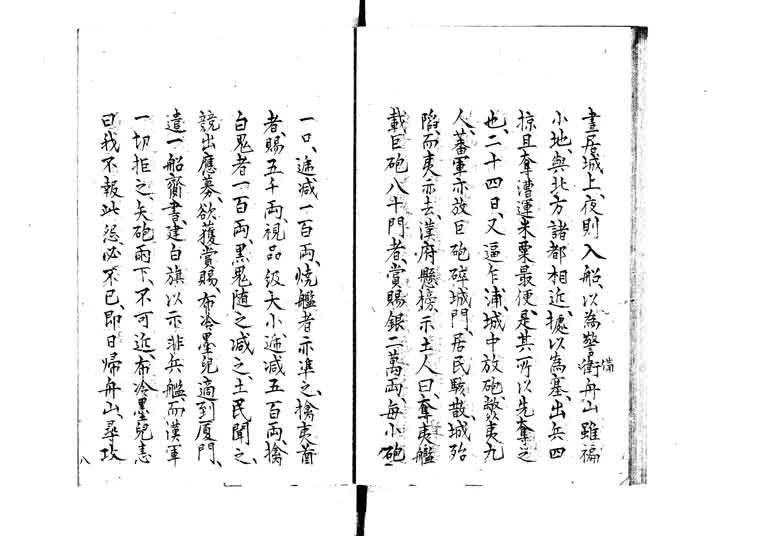 晝居城上、夜則入船、以為警衛舟山雖褊
備
小地、與北方諸都相近、據以為塞、出兵四
掠、且奪漕運米粟最便、是其所以先奪之
也、二十四日、又逼乍浦、城中放砲、斃夷九
人、蕃軍亦放巨砲碎城門、居民駭散、城殆
陷、而夷亦去、漢府懸榜示士人曰、奪夷艦
載巨砲八十門者、賞賜銀二萬兩、每小砲
一口、遞減一百兩、燒艦者亦準之、擒夷酋
者、賜五千兩、視品級大小遞減五百兩、擒
白鬼者一百兩、黑鬼隨之減之、土民聞之、
競出應募、欲獲賞賜、布冷墨兒適到厦門、
遣一船齎書、建白旗以示非兵艦、而漢軍
一切拒之、矢砲雨下、不可近、布冷墨兒恚
曰、我不報此怨、必不已、即日歸舟山、尋攻
八